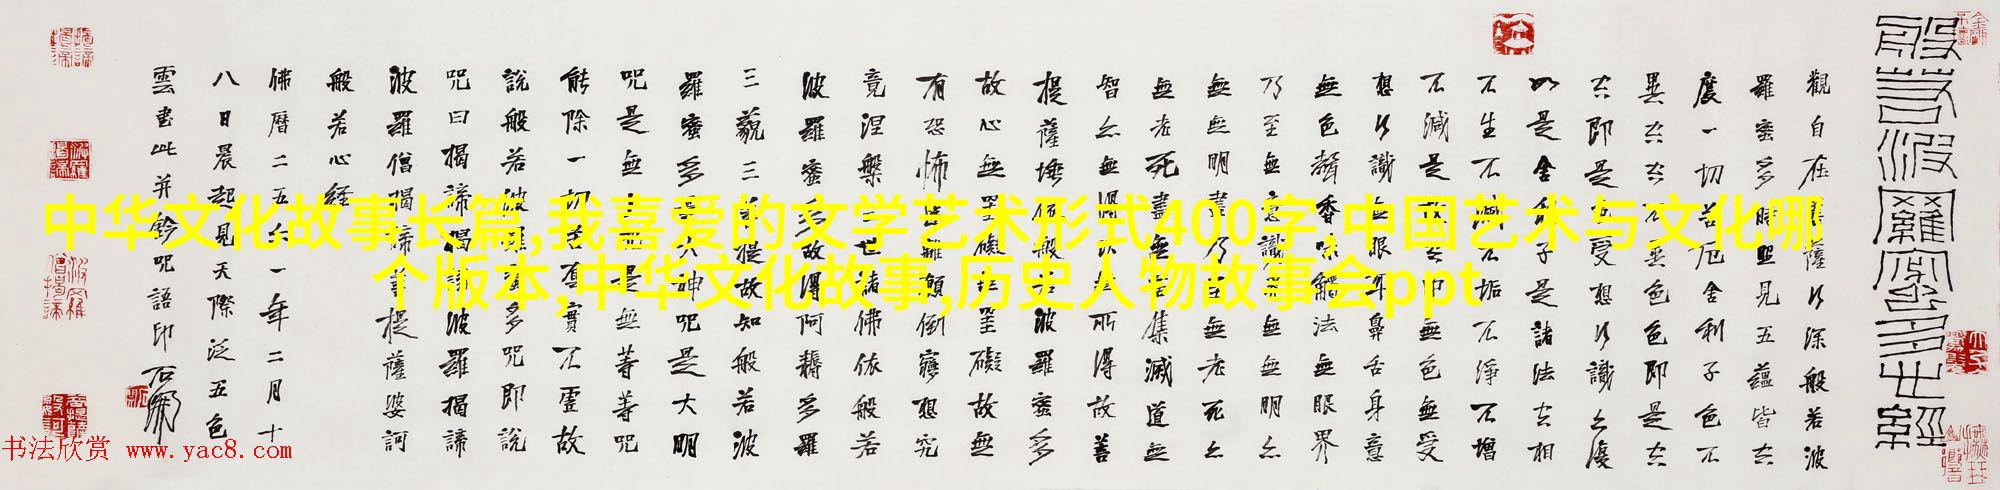 般若波羅蜜多心經
觀自在菩薩行深般若波
羅蜜多時照見五蘊皆空
度一切苦厄舍利子色不
異空空不異色色即是空
空即是色受想行識亦復
如是舍利子是諸法空相
不生不滅不垢不淨不增
不減是故空中無色無受
想行識無眼耳鼻舌身意
無色聲香味觸法無眼界
乃至無意識界無無明亦
無無明盡乃至無老死亦
無老死盡無苦集滅道無
智亦無得以無所得故菩
提薩埵依般若波羅蜜多
故心無罣礙無罣礙故無
有恐怖遠離顛倒夢想究
竟涅槃三世諸佛依般若
波羅蜜多故得阿耨多羅
三藐三菩提故知般若波
羅蜜多是大神咒是大明
咒是無上咒是無等等咒
能除一切苦真實不虛故
說般若波羅蜜多咒即說
咒曰揭諦揭諦波羅揭諦
波羅僧揭諦菩提薩婆訶
般若心経
佛曆二五六一年二月十
八日晨起見天際泛五色
雲書此并鈐咒語印
中华文化故事长篇,我喜爱的文学艺术形式400字,中国艺术与文化哪
个版本,中华文化故事,历史人物故事会ppt
书法欣赏 www.yac8.com